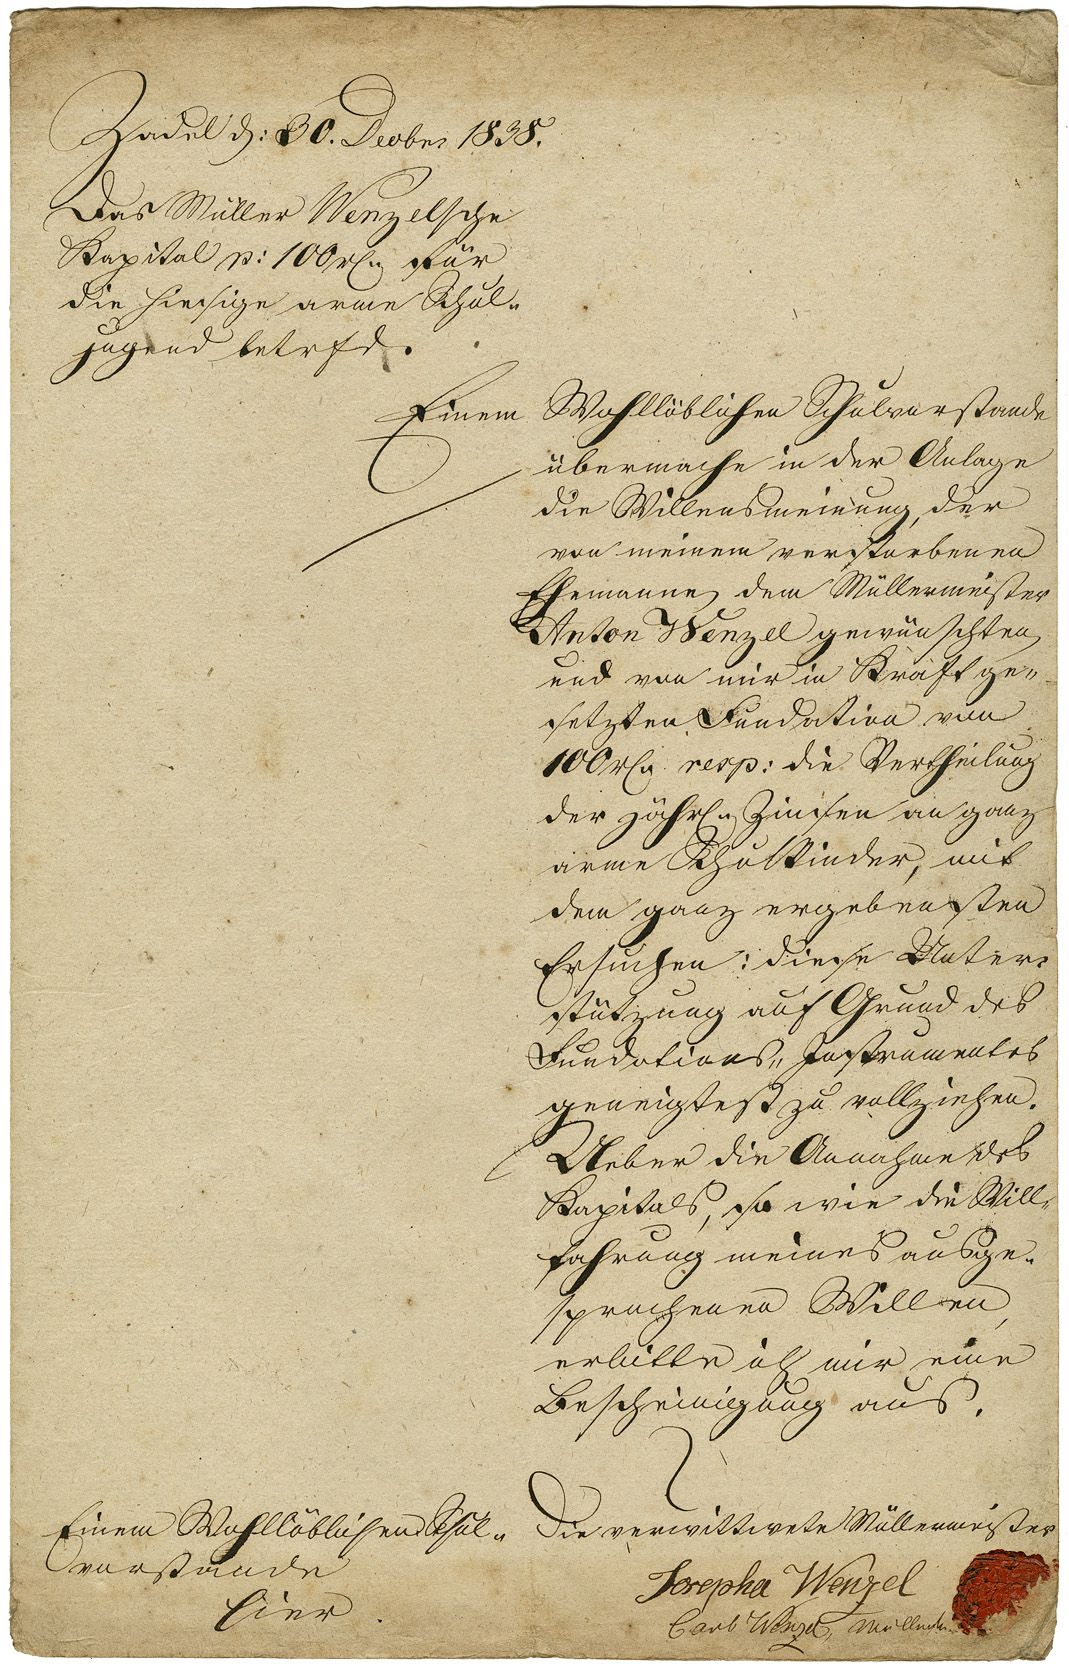 Zadel d: 30. Decbr. 1838.
Das Müller Wenzelsche
Kapital p: 100 rℓ. für
die hiesige arme Schul„
jugend betrfd.
Einem Wohllöblichen Schulvorstande
übermache in der Anlage
die Willensmeinung, der
von meinem verstorbenen
Ehemanne, dem Müllermeister
Anton Wenzel gewünschten,
und von mir in Kraft ge„
setzten Fundation von
100 rℓ. resp: die Vertheilung
der jährl. Zinsen an ganz
arme Schulkinder, mit
dem ganz ergebensten
Ersuchen: diese Unter„
stützung auf Grund des
Fundations„ Instrumentes
geneigtest zu vollziehen.
Ueber die Annahme des
Kapitals, so wie die Will„
fahrung meines ausge„
sprochenen Willen,
erbitte ich mir eine
Bescheinigung aus.
Einem Wohllöblichen Schul„
vorstande
hier.
Die verwittwete Müllermeister
Josepha Wenzel
Carl Wenzel,